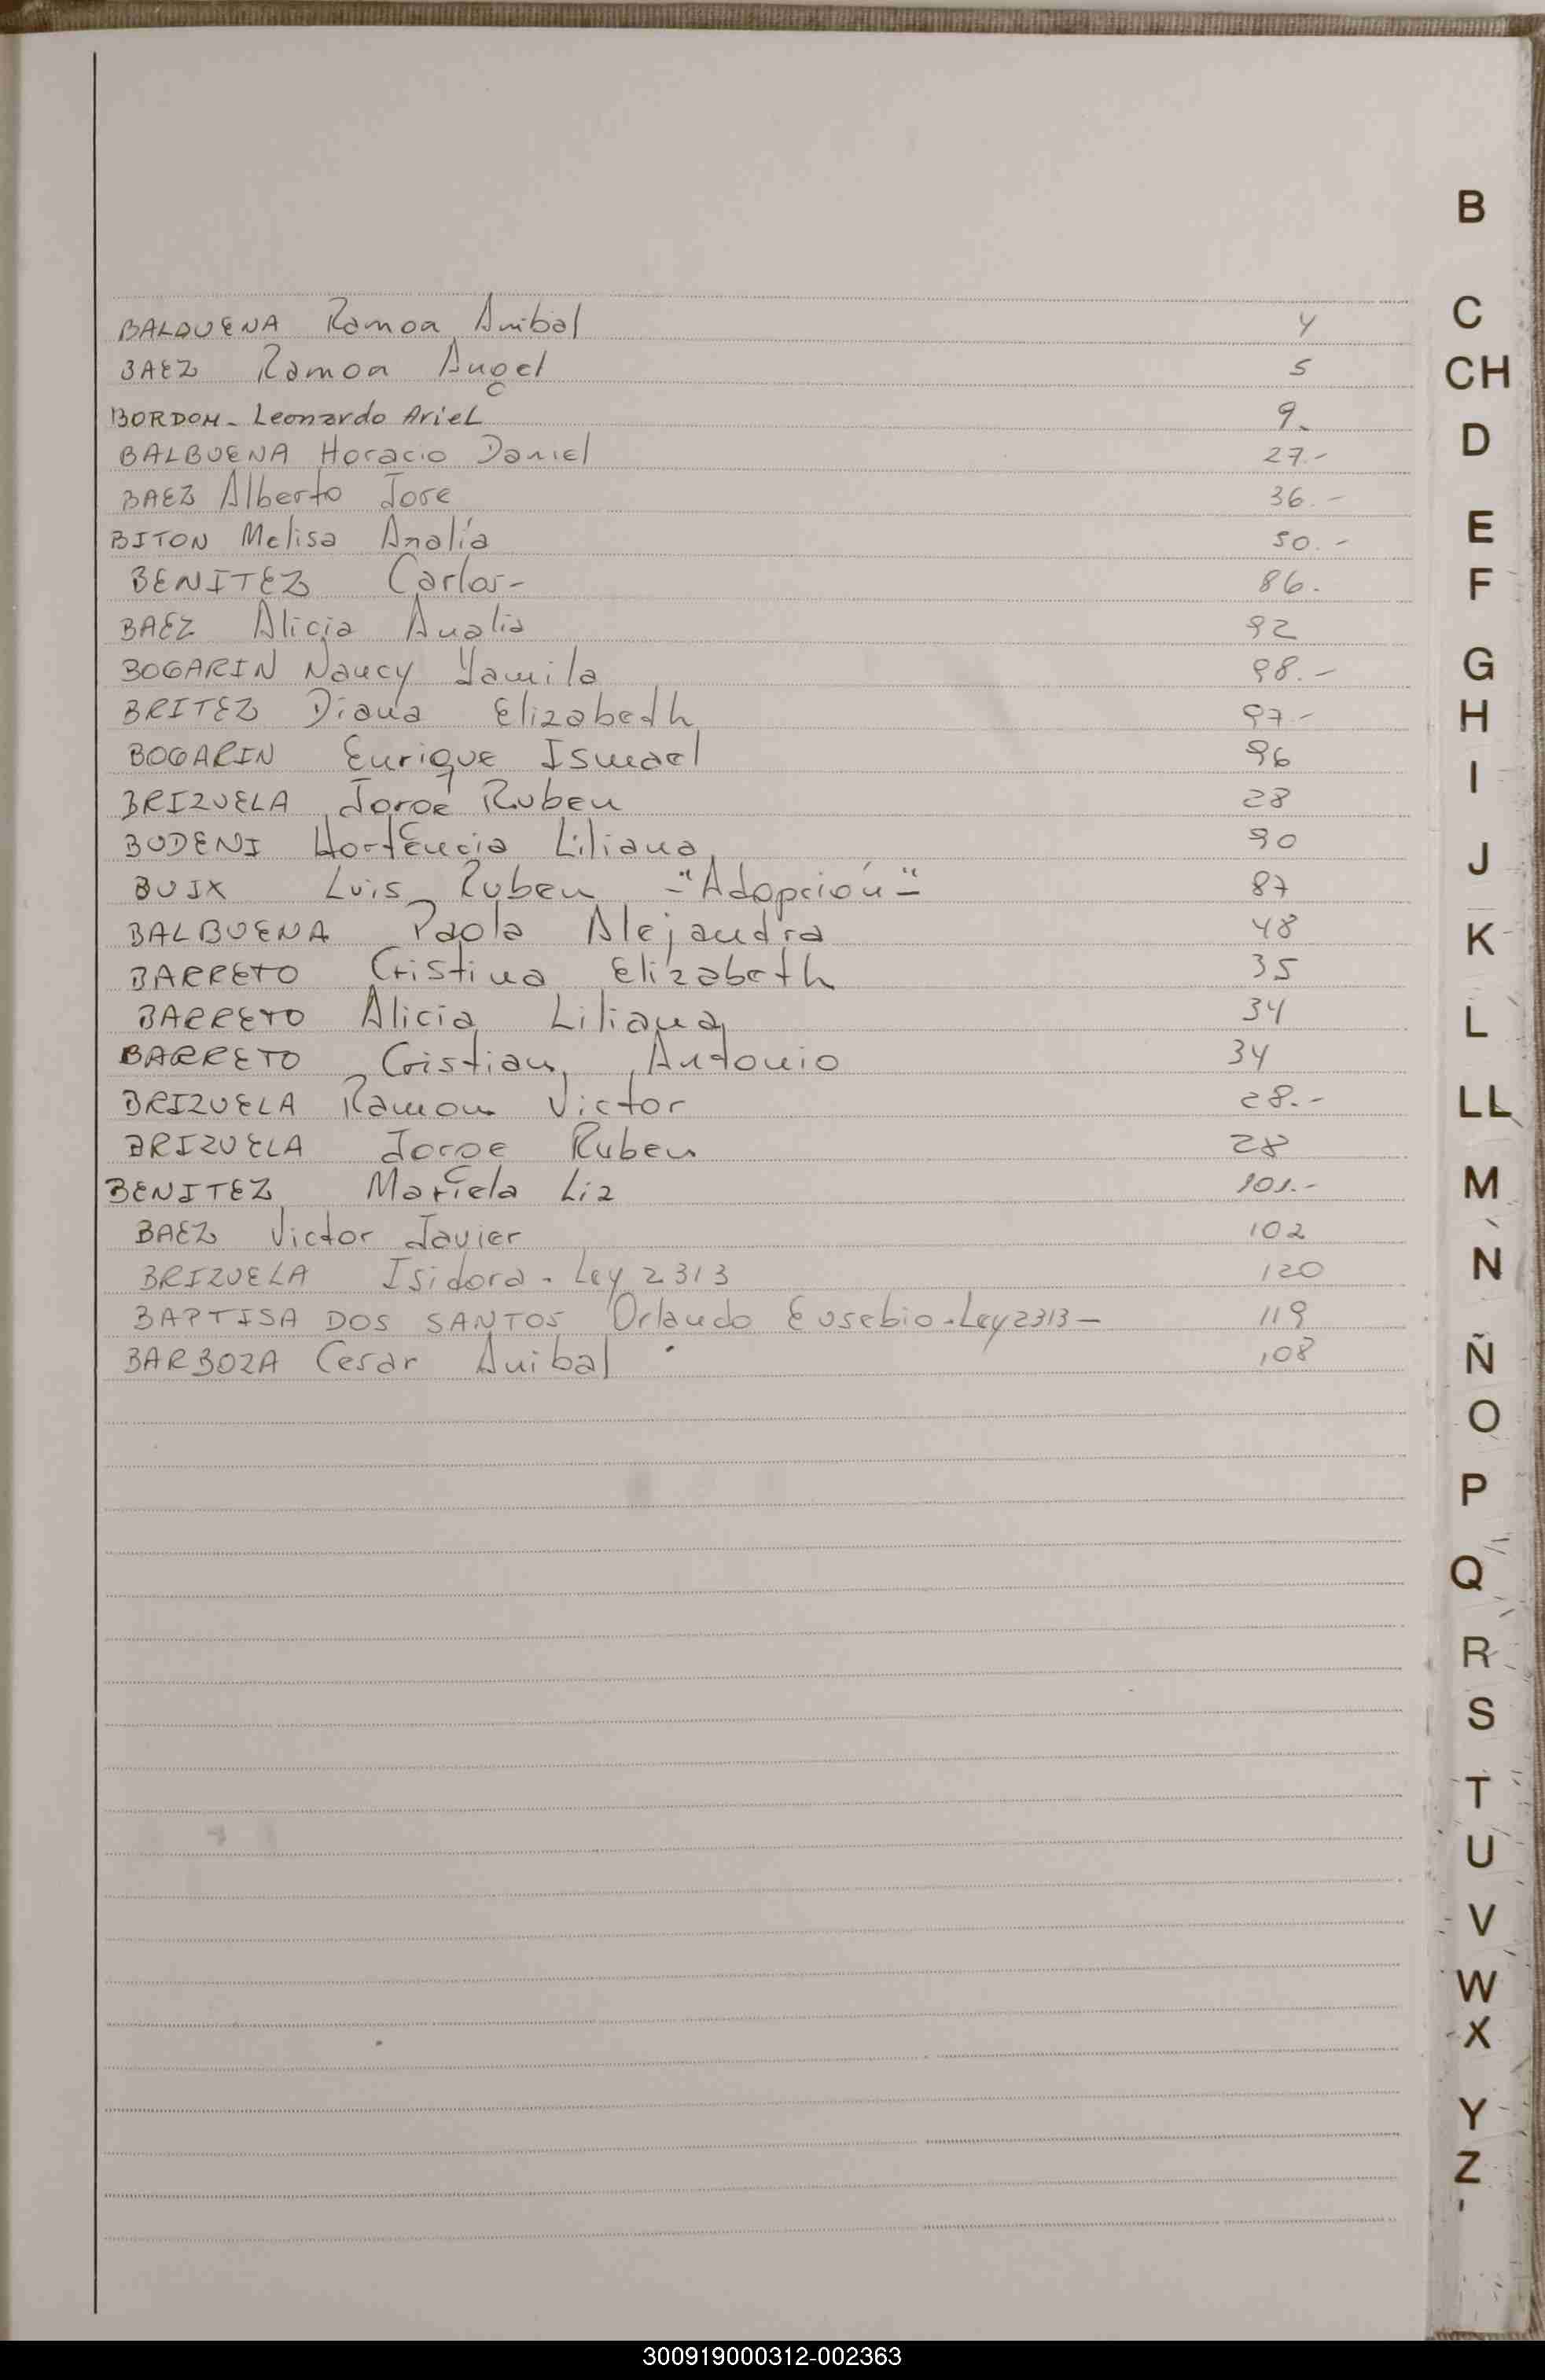 BALBUENA Ramon Anibal 4
BAEZ Ramon Angel 5
BORDON - Leonardo Ariel 9.
BALBUENA Horacio Daniel 27.-
BAEZ Alberto Jose 36.-
BITON Melisa Analía 50.-
BENITEZ Carlos- 86.
BAEZ Alicia Analia 92
BOGARIN Nancy Yamila 98.-
BRITEZ Diana Elizabeth 97.-
BOGARIN Enrique Ismael 96
BRIZUELA Jorge Ruben 28
BODENI Hortencia Liliana 90
BUIX Luis Ruben -"Adopción"- 87
BALBUENA Paola Alejandra 48
BARRETO Cristina Elizabeth 35
BARRETO Alicia Liliana 34
BARRETO Cristian Antonio 34
BRIZUELA Ramon Victor 28.-
BRIZUELA Jorge Ruben 28
BENITEZ Mariela Liz 101.-
BAEZ Victor Javier 102
BRIZUELA Isidora - Ley 2313 120
BAPTISA DOS SANTOS Orlando Eusebio - Ley 2313 - 119
BARBOZA Cesar Anibal 108
B
C
CH
D
E
F
G
H
I
J
K
L
LL
M
N
Ñ
O
P
Q
R
S
T
U
V
W
X
Y
Z
300919000312-002363